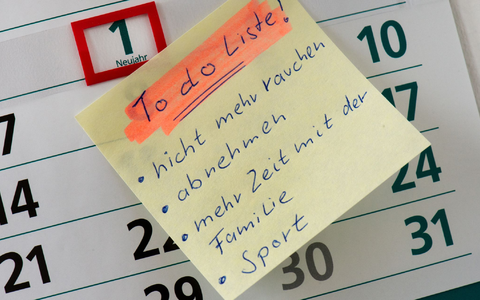 1
Neujahr
To do Liste!
• nicht mehr rauchen
• abnehmen
• mehr Zeit mit der
Familie
• Sport
10
7
17
14
24
21
22
31
28
29
30